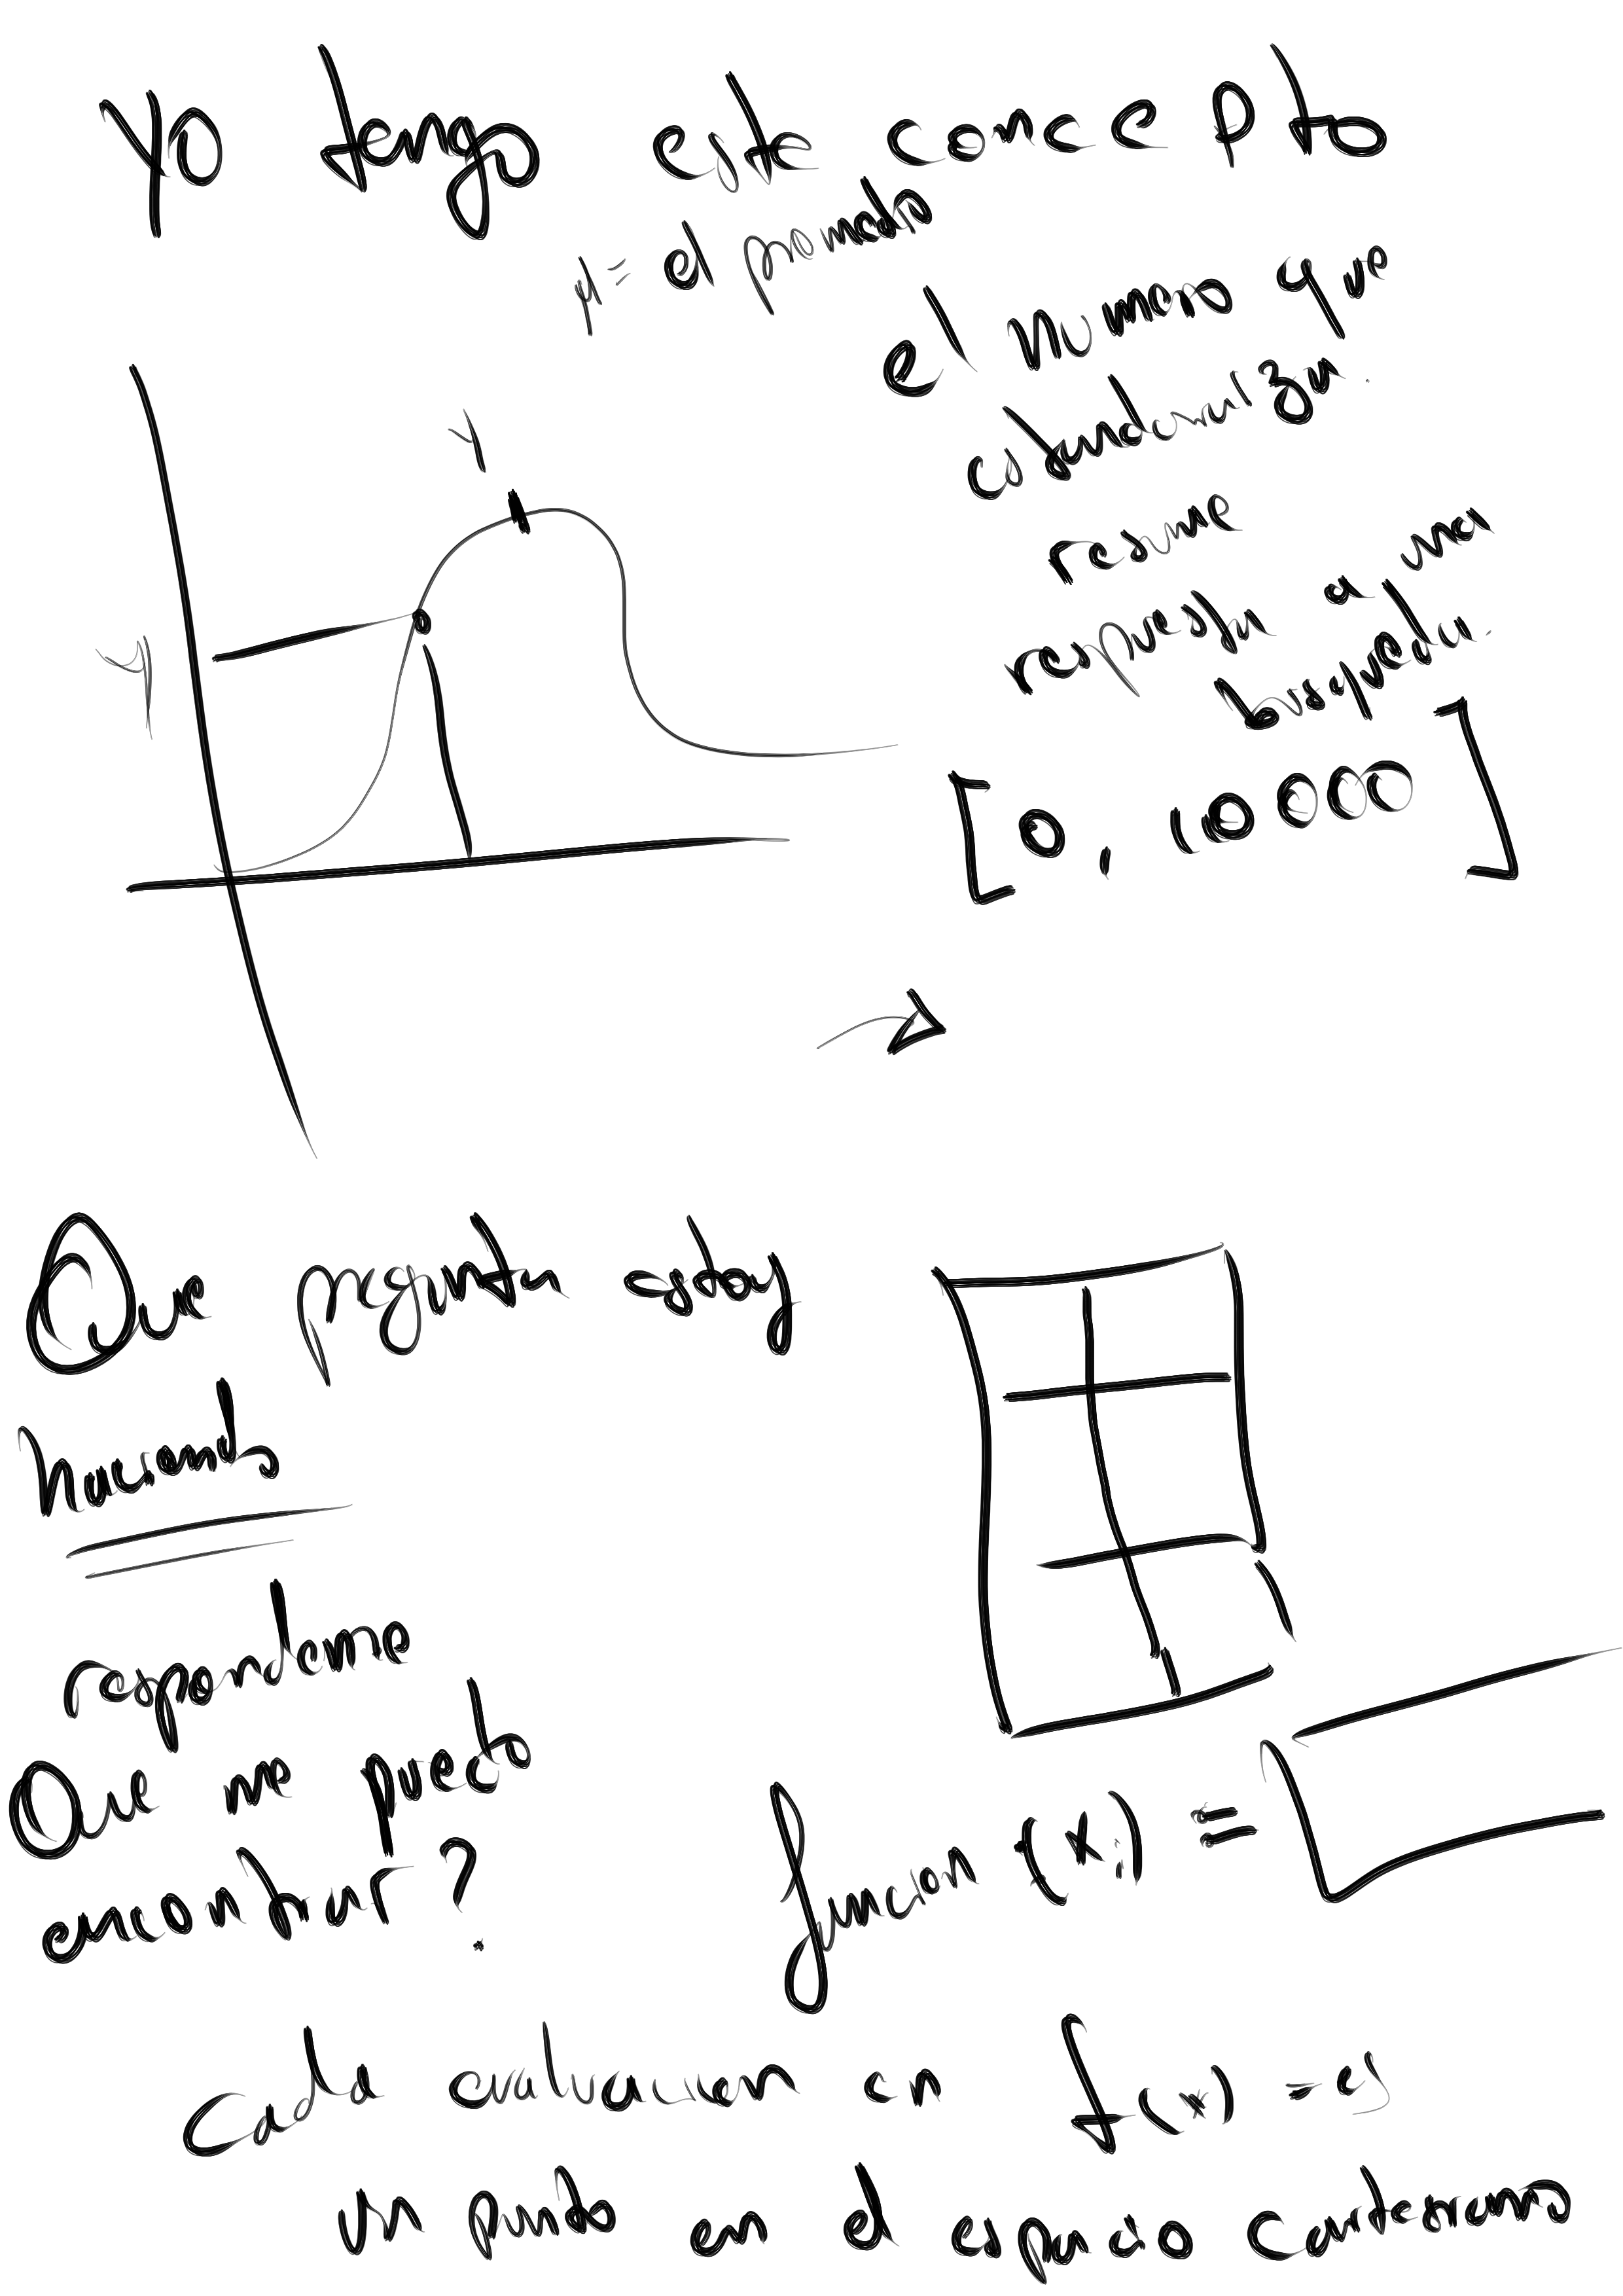 Yo tengo este concepto
μ = el promedio
el numero que
estandariza.
resume
respuesta a una
busqueda.
[0, 10000]
y
Que pregunta estoy
haciendo
respondeme
Que me puedo
encontrar?
funcion (x) =
Cada evaluacion en f(x) - es
un punto en el espacio cartesiano